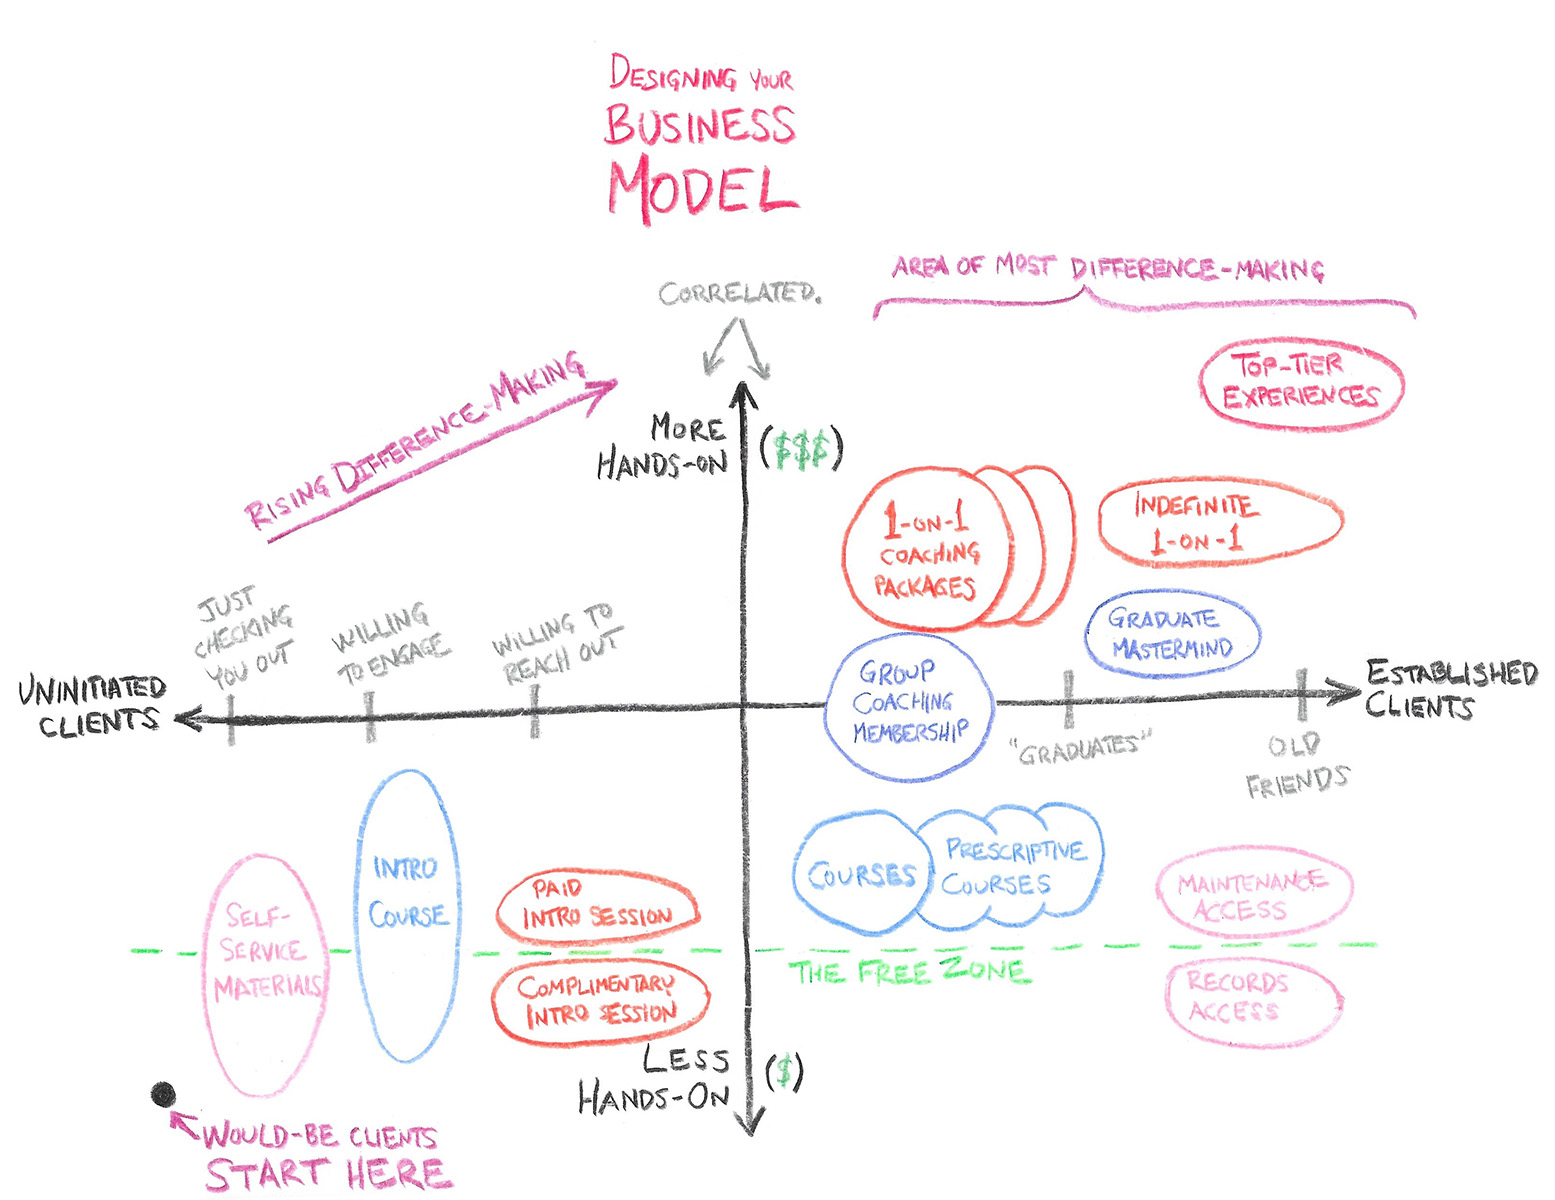 DESIGNING YOUR
BUSINESS
MODEL
AREA OF MOST DIFFERENCE-MAKING
CORRELATED.
TOP-TIER
EXPERIENCES
RISING DIFFERENCE-MAKING
MORE
HANDS-ON
($$$)
1-ON-1
COACHING
PACKAGES
INDEFINITE
1-ON-1
JUST
CHECKING
YOU OUT
WILLING
TO ENGAGE
WILLING TO
REACH OUT
GRADUATE
MASTERMIND
UNINITIATED
CLIENTS
GROUP
COACHING
MEMBERSHIP
ESTABLISHED
CLIENTS
"GRADUATES"
OLD
FRIENDS
INTRO
COURSE
COURSES
PRESCRIPTIVE
COURSES
SELF-
SERVICE
MATERIALS
PAID
INTRO SESSION
MAINTENANCE
ACCESS
THE FREE ZONE
COMPLIMENTARY
INTRO SESSION
RECORDS
ACCESS
LESS
HANDS-ON
($)
WOULD-BE CLIENTS
START HERE